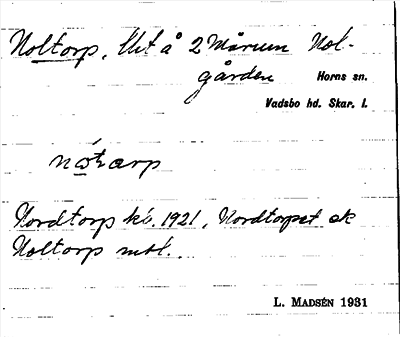 Noltorp, lht å 2 Mårum Nol-
gården Horns sn.
Vadsbo hd. Skar. l.
nótarp
Nordtorp kb. 1921, Nordtorpet ek
Noltorp mtl.
L. MADSÉN 1931